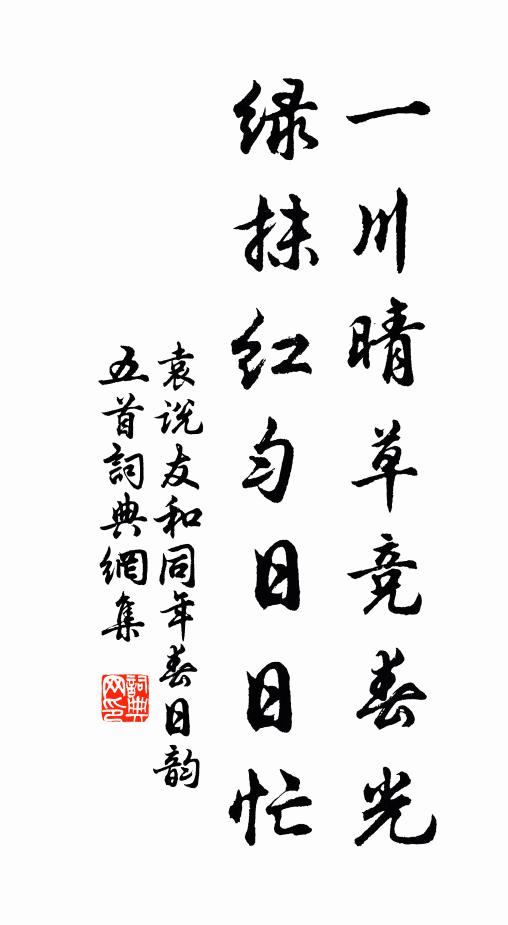 一川晴草竞春光
绿抹红匀日日忙
袁说友和同年春日韵
五首詞典網集
詞典网印